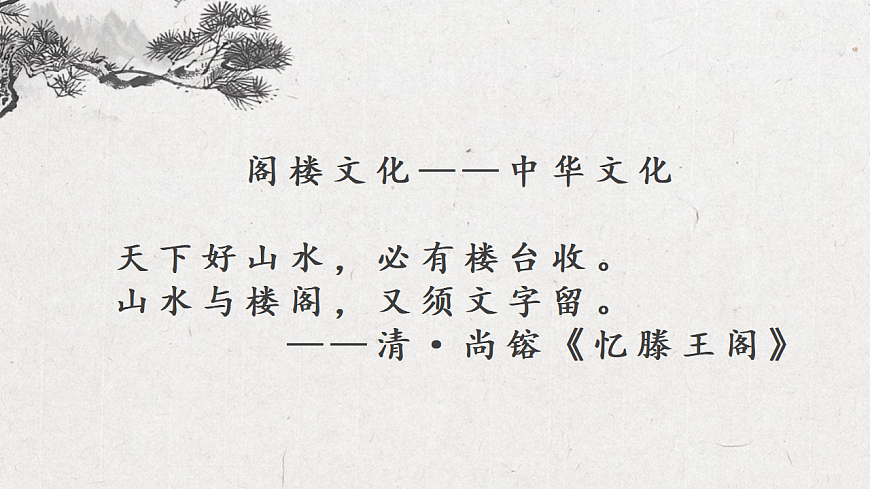 阁楼文化——中华文化
天下好山水，必有楼台收。
山水与楼阁，又须文字留。
——清·尚镕《忆滕王阁》